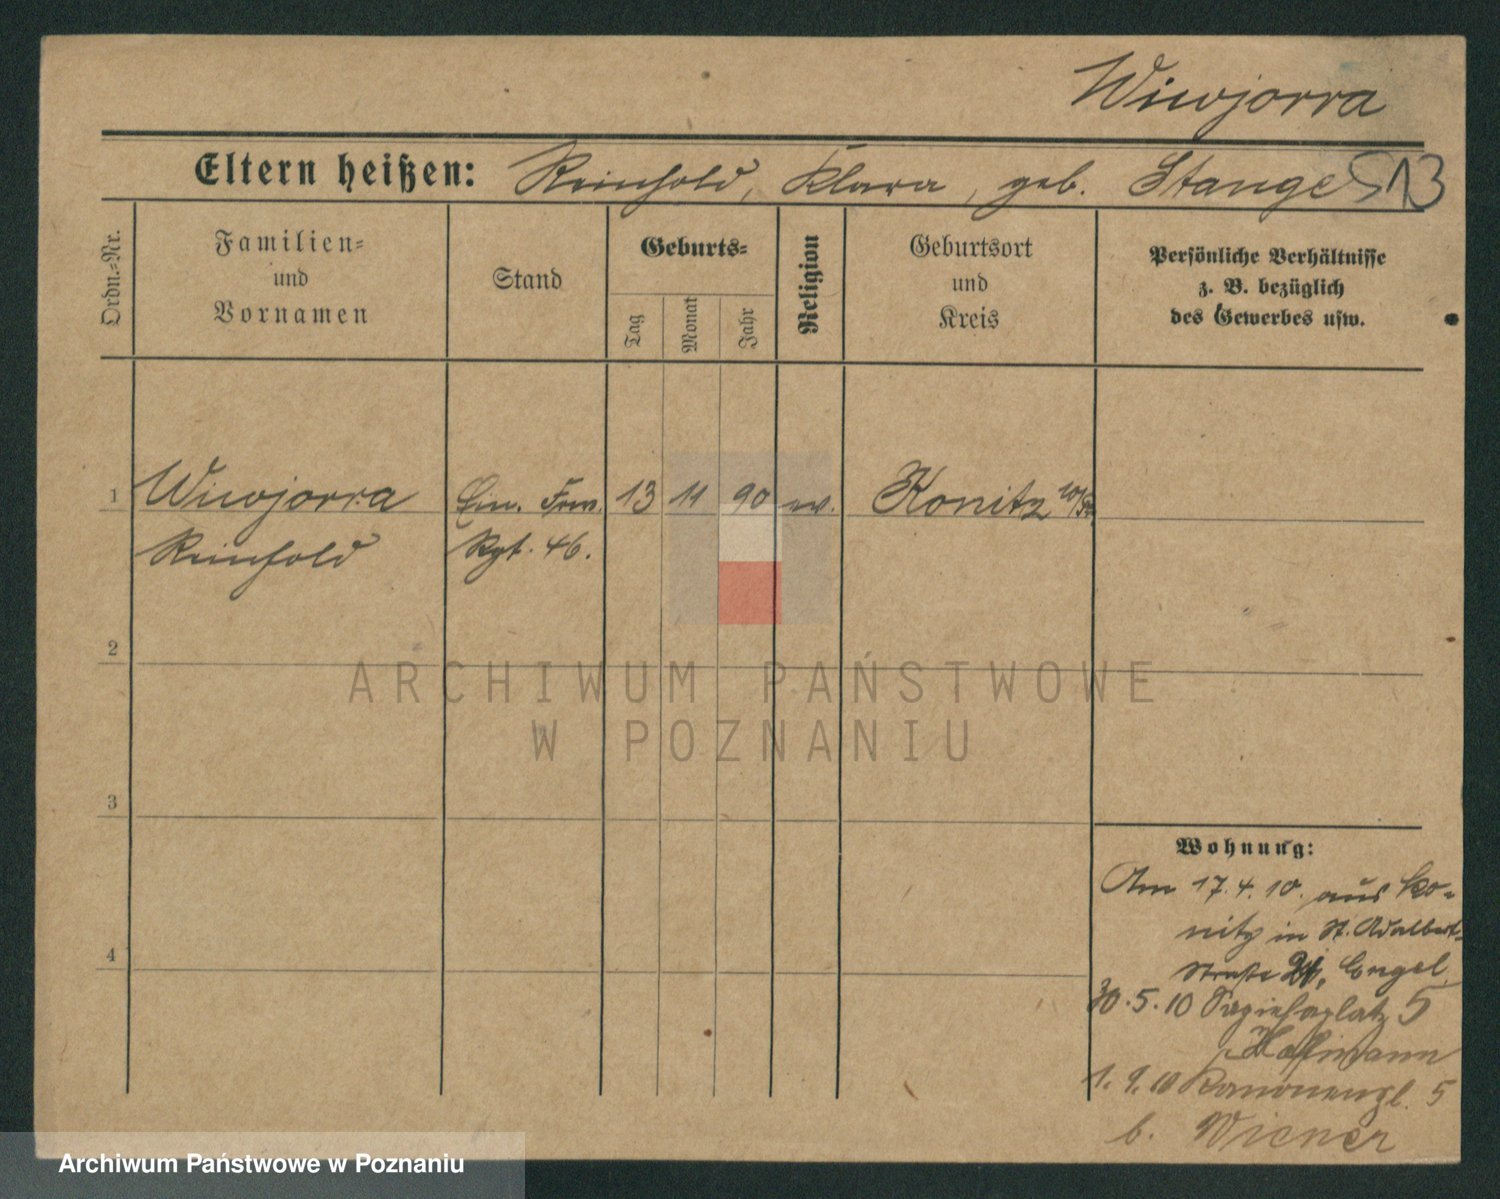 Wiwjorra
Eltern heißen: Reinhold, Klara, geb. Stange
513
Ordn.-Nr.
Familien-
und
Vornamen
Stand
Geburts-
Tag
Monat
Jahr
Religion
Geburtsort
und
Kreis
Persönliche Verhältnisse
z. B. bezüglich
des Gewerbes usw.
1 Wiwjorra Ein. Frw. 13 11 90 ev. Konitz W/Pr.
Reinhold Rgt. 46.
2
3
4
ARCHIWUM PAŃSTWOWE
W POZNANIU
Wohnung:
Am 17.4.10. aus Ko-
nitz in St. Adalbert-
straße Engel
30.5.10 Sapiehaplatz 5
Hoffmann
1.9.10 Kanonenpl. 5
b. Wiener
Archiwum Państwowe w Poznaniu